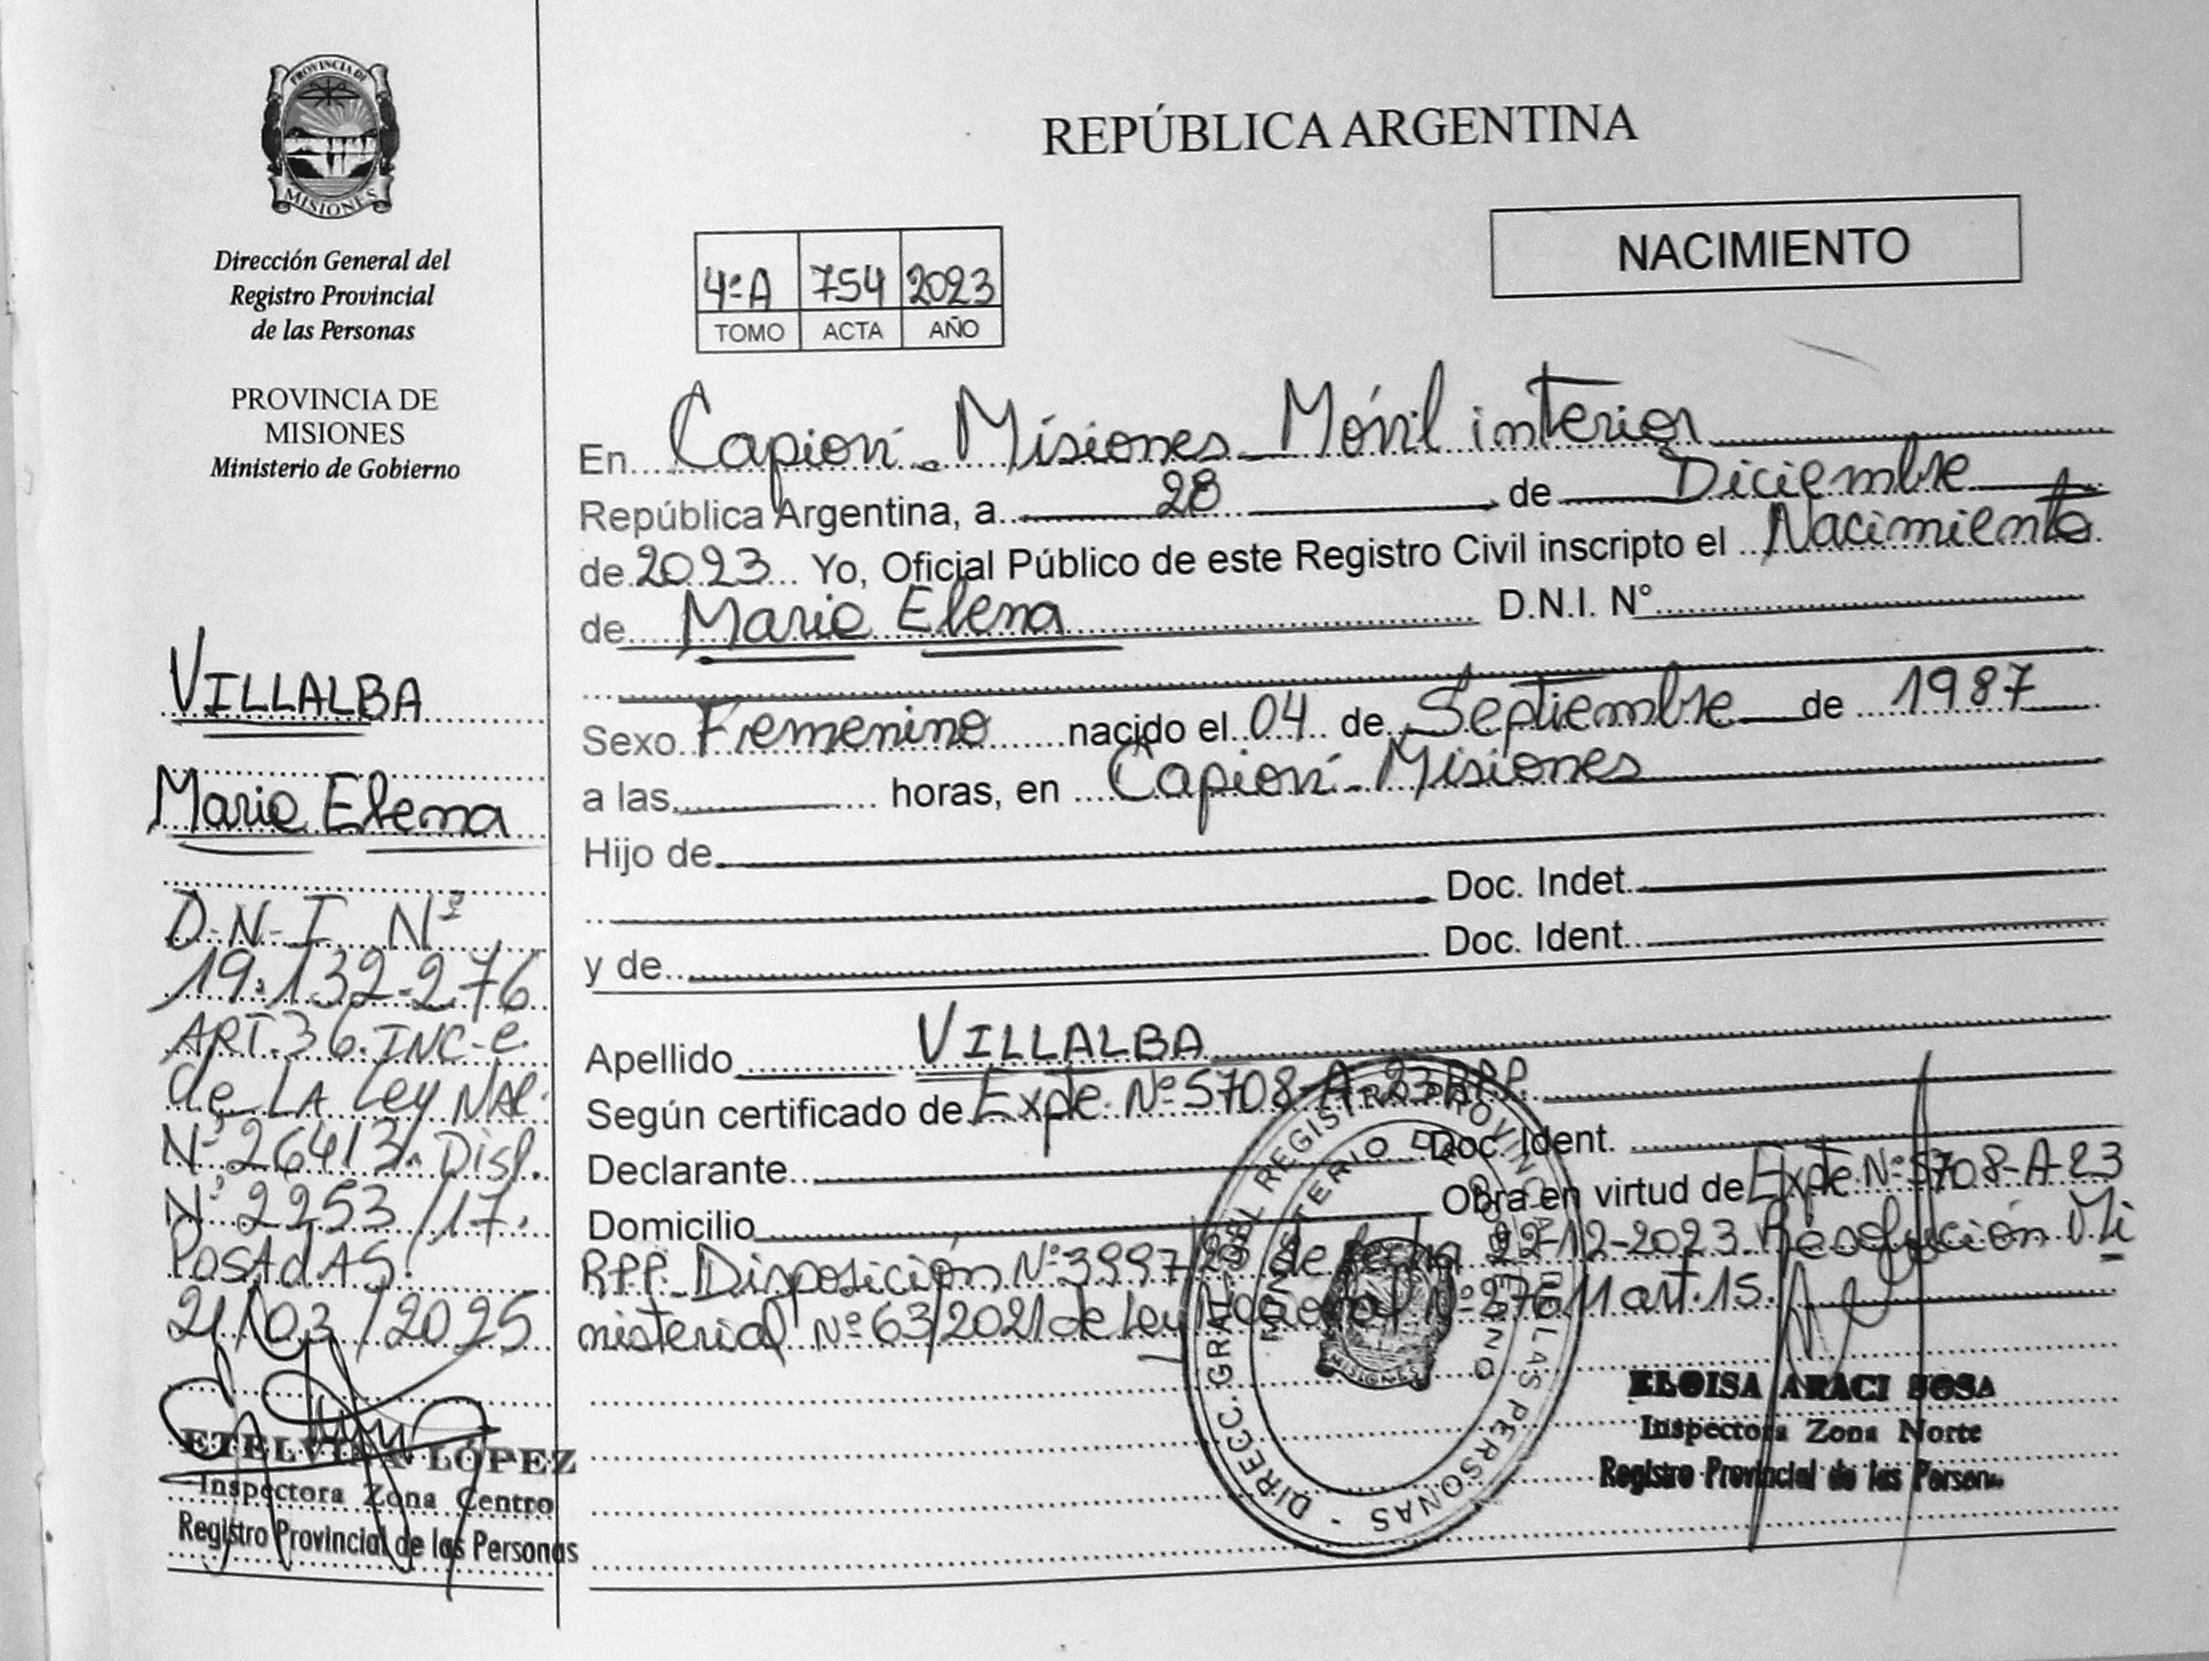 PROVINCIA DE
MISIONES
Dirección General del
Registro Provincial
de las Personas
PROVINCIA DE
MISIONES
Ministerio de Gobierno
VILLALBA
Maria Elena
D-N-I Nº
19.132-276
ART.36.INC-e.
de LA Ley NAL.
Nº 26413. Disp.
Nº 2253/17.
POSAdAS.
21/03/2025
ETELVINA LÓPEZ
Inspectora Zona Centro
Registro Provincial de las Personas
REPÚBLICA ARGENTINA
NACIMIENTO
4ºA 754 2023
TOMO ACTA AÑO
En Capioví - Misiones - Móvil interior
República Argentina, a 28 de Diciembre
de 2023 Yo, Oficial Público de este Registro Civil inscripto el Nacimiento
de Maria Elena D.N.I. N°
Sexo Femenino nacido el 04 de Septiembre de 1987
a las horas, en Capioví - Misiones
Hijo de
Doc. Indet.
y de Doc. Ident.
Apellido VILLALBA
Según certificado de Expte. Nº 5708-A-23 RPP.
Declarante Doc. Ident.
Domicilio Obra en virtud de Expte Nº 5708-A-23
RPP. Disposición Nº 3997/23 de fecha 22-12-2023 Resolución Mi
nisterial Nº 63/2021 de Ley Nacional Nº 27611 art. 15.
DIRECC. GRAL. DEL REGISTRO PROVINCIAL DE LAS PERSONAS
MINISTERIO DE GOBIERNO
MISIONES
ELOISA ARACI SOSA
Inspectora Zona Norte
Registro Provincial de las Personas